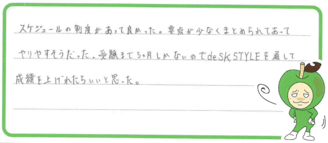 スケジュールの制度があって良かった。要点が少なくまとめられてあって
やりやすそうだった。受験まで3ヶ月しかないのでdeSKSTYLEを通して
成績を上げれたらいいと思った。